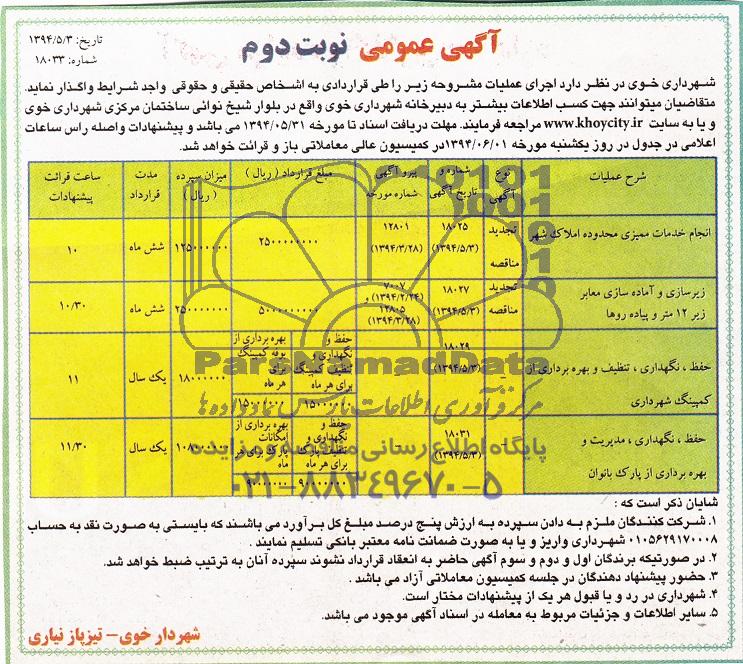 آگهی عمومی نوبت دوم
تاریخ: ۱۳۹۴/۵/۳
شماره: ۱۸۰۳۳
شهرداری خوی در نظر دارد اجرای عملیات مشروحه زیر را طی قراردادی به اشخاص حقیقی و حقوقی واجد شرایط واگذار نماید.
متقاضیان میتوانند جهت کسب اطلاعات بیشتر به دبیرخانه شهرداری خوی واقع در بلوار شیخ نوائی ساختمان مرکزی شهرداری خوی
و یا به سایت www.khoycity.ir مراجعه فرمایند. مهلت دریافت اسناد تا مورخه ۱۳۹۴/۰۵/۳۱ می باشد و پیشنهادات واصله راس ساعات
اعلامی در جدول در روز یکشنبه مورخه ۱۳۹۴/۰۶/۰۱در کمیسیون عالی معاملاتی باز و قرائت خواهد شد.
شرح عملیات
نوع آگهی
شماره و تاریخ آگهی
پیرو آگهی شماره مورخه
مبلغ قرارداد ( ریال )
میزان سپرده ( ریال )
مدت قرارداد
ساعت قرائت پیشنهادات
انجام خدمات ممیزی محدوده املاک شهر
تجدید مناقصه
۱۸۰۲۵ (۱۳۹۴/۵/۳)
۱۲۸۰۱ (۱۳۹۴/۳/۲۸)
۲۵۰۰۰۰۰۰۰۰
۱۲۵۰۰۰۰۰۰
شش ماه
۱۰
زیرسازی و آماده سازی معابر
زیر ۱۲ متر و پیاده روها
تجدید مناقصه
۱۸۰۲۷ (۱۳۹۴/۵/۳)
۷۰۰۷ (۱۳۹۴/۲/۲۴) و
۱۲۸۰۵ (۱۳۹۴/۳/۲۸)
۵۰۰۰۰۰۰۰۰۰
۲۵۰۰۰۰۰۰۰
شش ماه
۱۰/۳۰
حفظ ، نگهداری ، تنظیف و بهره برداری از
کمپینگ شهرداری
۱۸۰۲۹ (۱۳۹۴/۵/۳)
حفظ و نگهداری و تنظیف کمپینگ برای هر ماه
بهره برداری از بوفه کمپینگ برای هر ماه
۱۸۰۰۰۰۰۰
یک سال
۱۱
حفظ ، نگهداری ، مدیریت و
بهره برداری از پارک بانوان
۱۸۰۳۱ (۱۳۹۴/۵/۳)
حفظ و نگهداری و تنظیف پارک برای هر ماه
بهره برداری از امکانات پارک برای هر ماه
یک سال
۱۱/۳۰
ParsNamadData
مرکز فرآوری اطلاعات پارس نماد داده ها
پایگاه اطلاع رسانی مناقصه و مزایده
۰۲۱-۸۸۳۴۹۶۷۰-۵
شایان ذکر است که :
۱. شرکت کنندگان ملزم به دادن سپرده به ارزش پنج درصد مبلغ کل برآورد می باشند که بایستی به صورت نقد به حساب
۰۱۰۵۶۲۹۱۷۰۰۰۸ شهرداری واریز و یا به صورت ضمانت نامه معتبر بانکی تسلیم نمایند .
۲. در صورتیکه برندگان اول و دوم و سوم آگهی حاضر به انعقاد قرارداد نشوند سپرده آنان به ترتیب ضبط خواهد شد.
۳. حضور پیشنهاد دهندگان در جلسه کمیسیون معاملاتی آزاد می باشد .
۴. شهرداری در رد و یا قبول هر یک از پیشنهادات مختار است.
۵. سایر اطلاعات و جزئیات مربوط به معامله در اسناد آگهی موجود می باشد.
شهردار خوی – تیزپاز نیاری